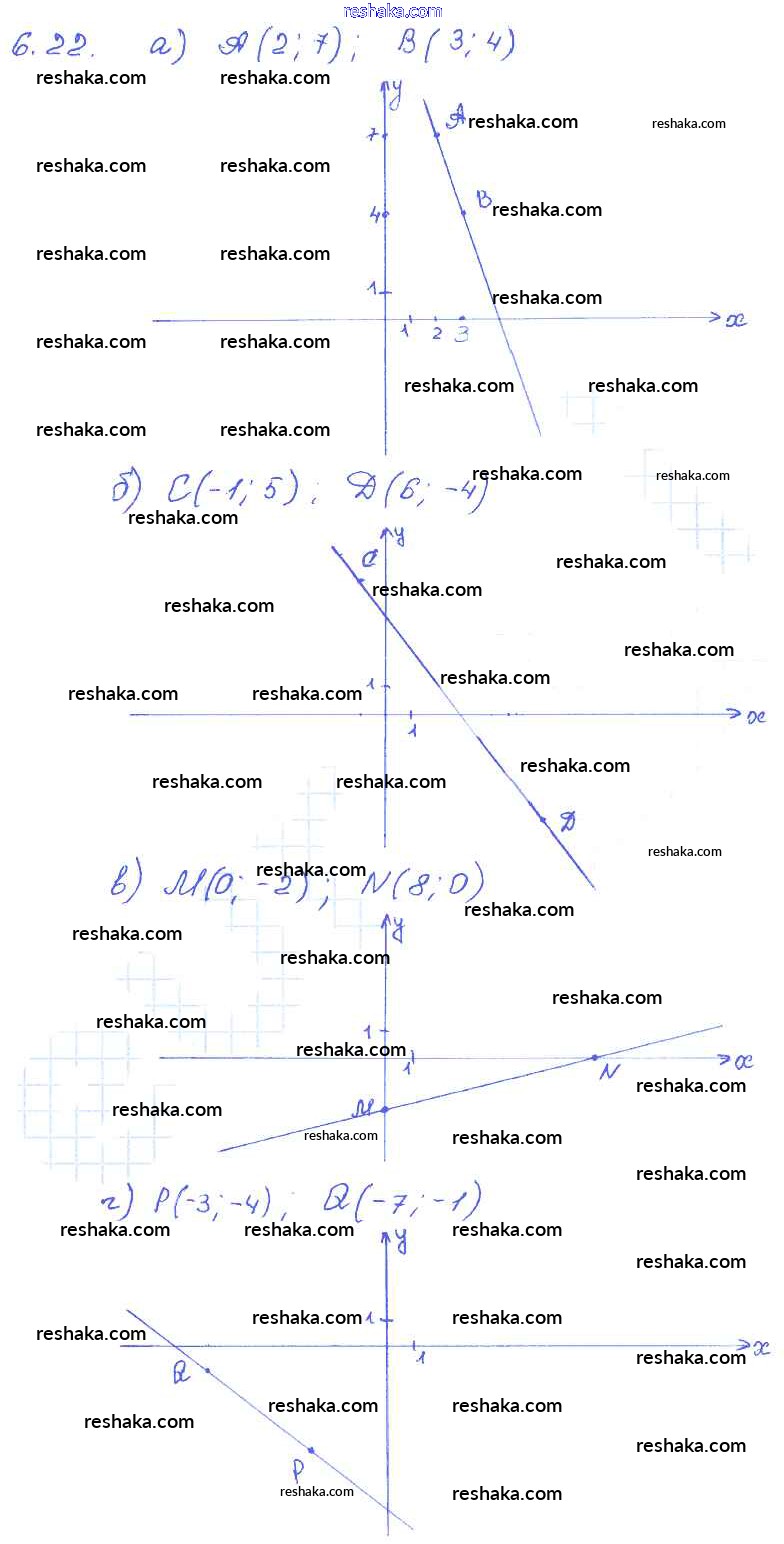 reshaka.com
6.22. а) A(2; 7); B(3; 4)
reshaka.com reshaka.com
y
A reshaka.com reshaka.com
7
reshaka.com reshaka.com
B reshaka.com
4
reshaka.com reshaka.com
1 reshaka.com
1 2 3 x
reshaka.com reshaka.com
reshaka.com reshaka.com
reshaka.com reshaka.com
reshaka.com reshaka.com
б) C(-1; 5); D(6; -4)
reshaka.com
y
C reshaka.com
reshaka.com
reshaka.com
reshaka.com
1 reshaka.com
reshaka.com reshaka.com
1 x
reshaka.com
reshaka.com reshaka.com
D
reshaka.com
reshaka.com
в) M(0; -2); N(8; 0)
reshaka.com
y
reshaka.com
reshaka.com
reshaka.com
reshaka.com
1
reshaka.com 1 N x
reshaka.com
M
reshaka.com
reshaka.com reshaka.com
reshaka.com
г) P(-3; -4); Q(-7; -1)
reshaka.com reshaka.com reshaka.com
y
reshaka.com
reshaka.com 1 reshaka.com
reshaka.com
1 x
reshaka.com
Q
reshaka.com reshaka.com
reshaka.com
reshaka.com
P
reshaka.com reshaka.com